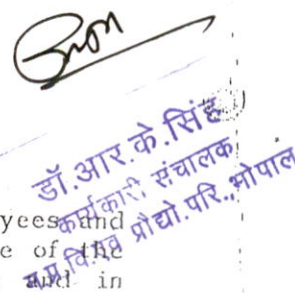 डॉ.आर.के.सिंह
कार्यकारी संचालक
म.प्र.वि.एवं प्रौद्यो.परि.,भोपाल
yees and
e of the
and in